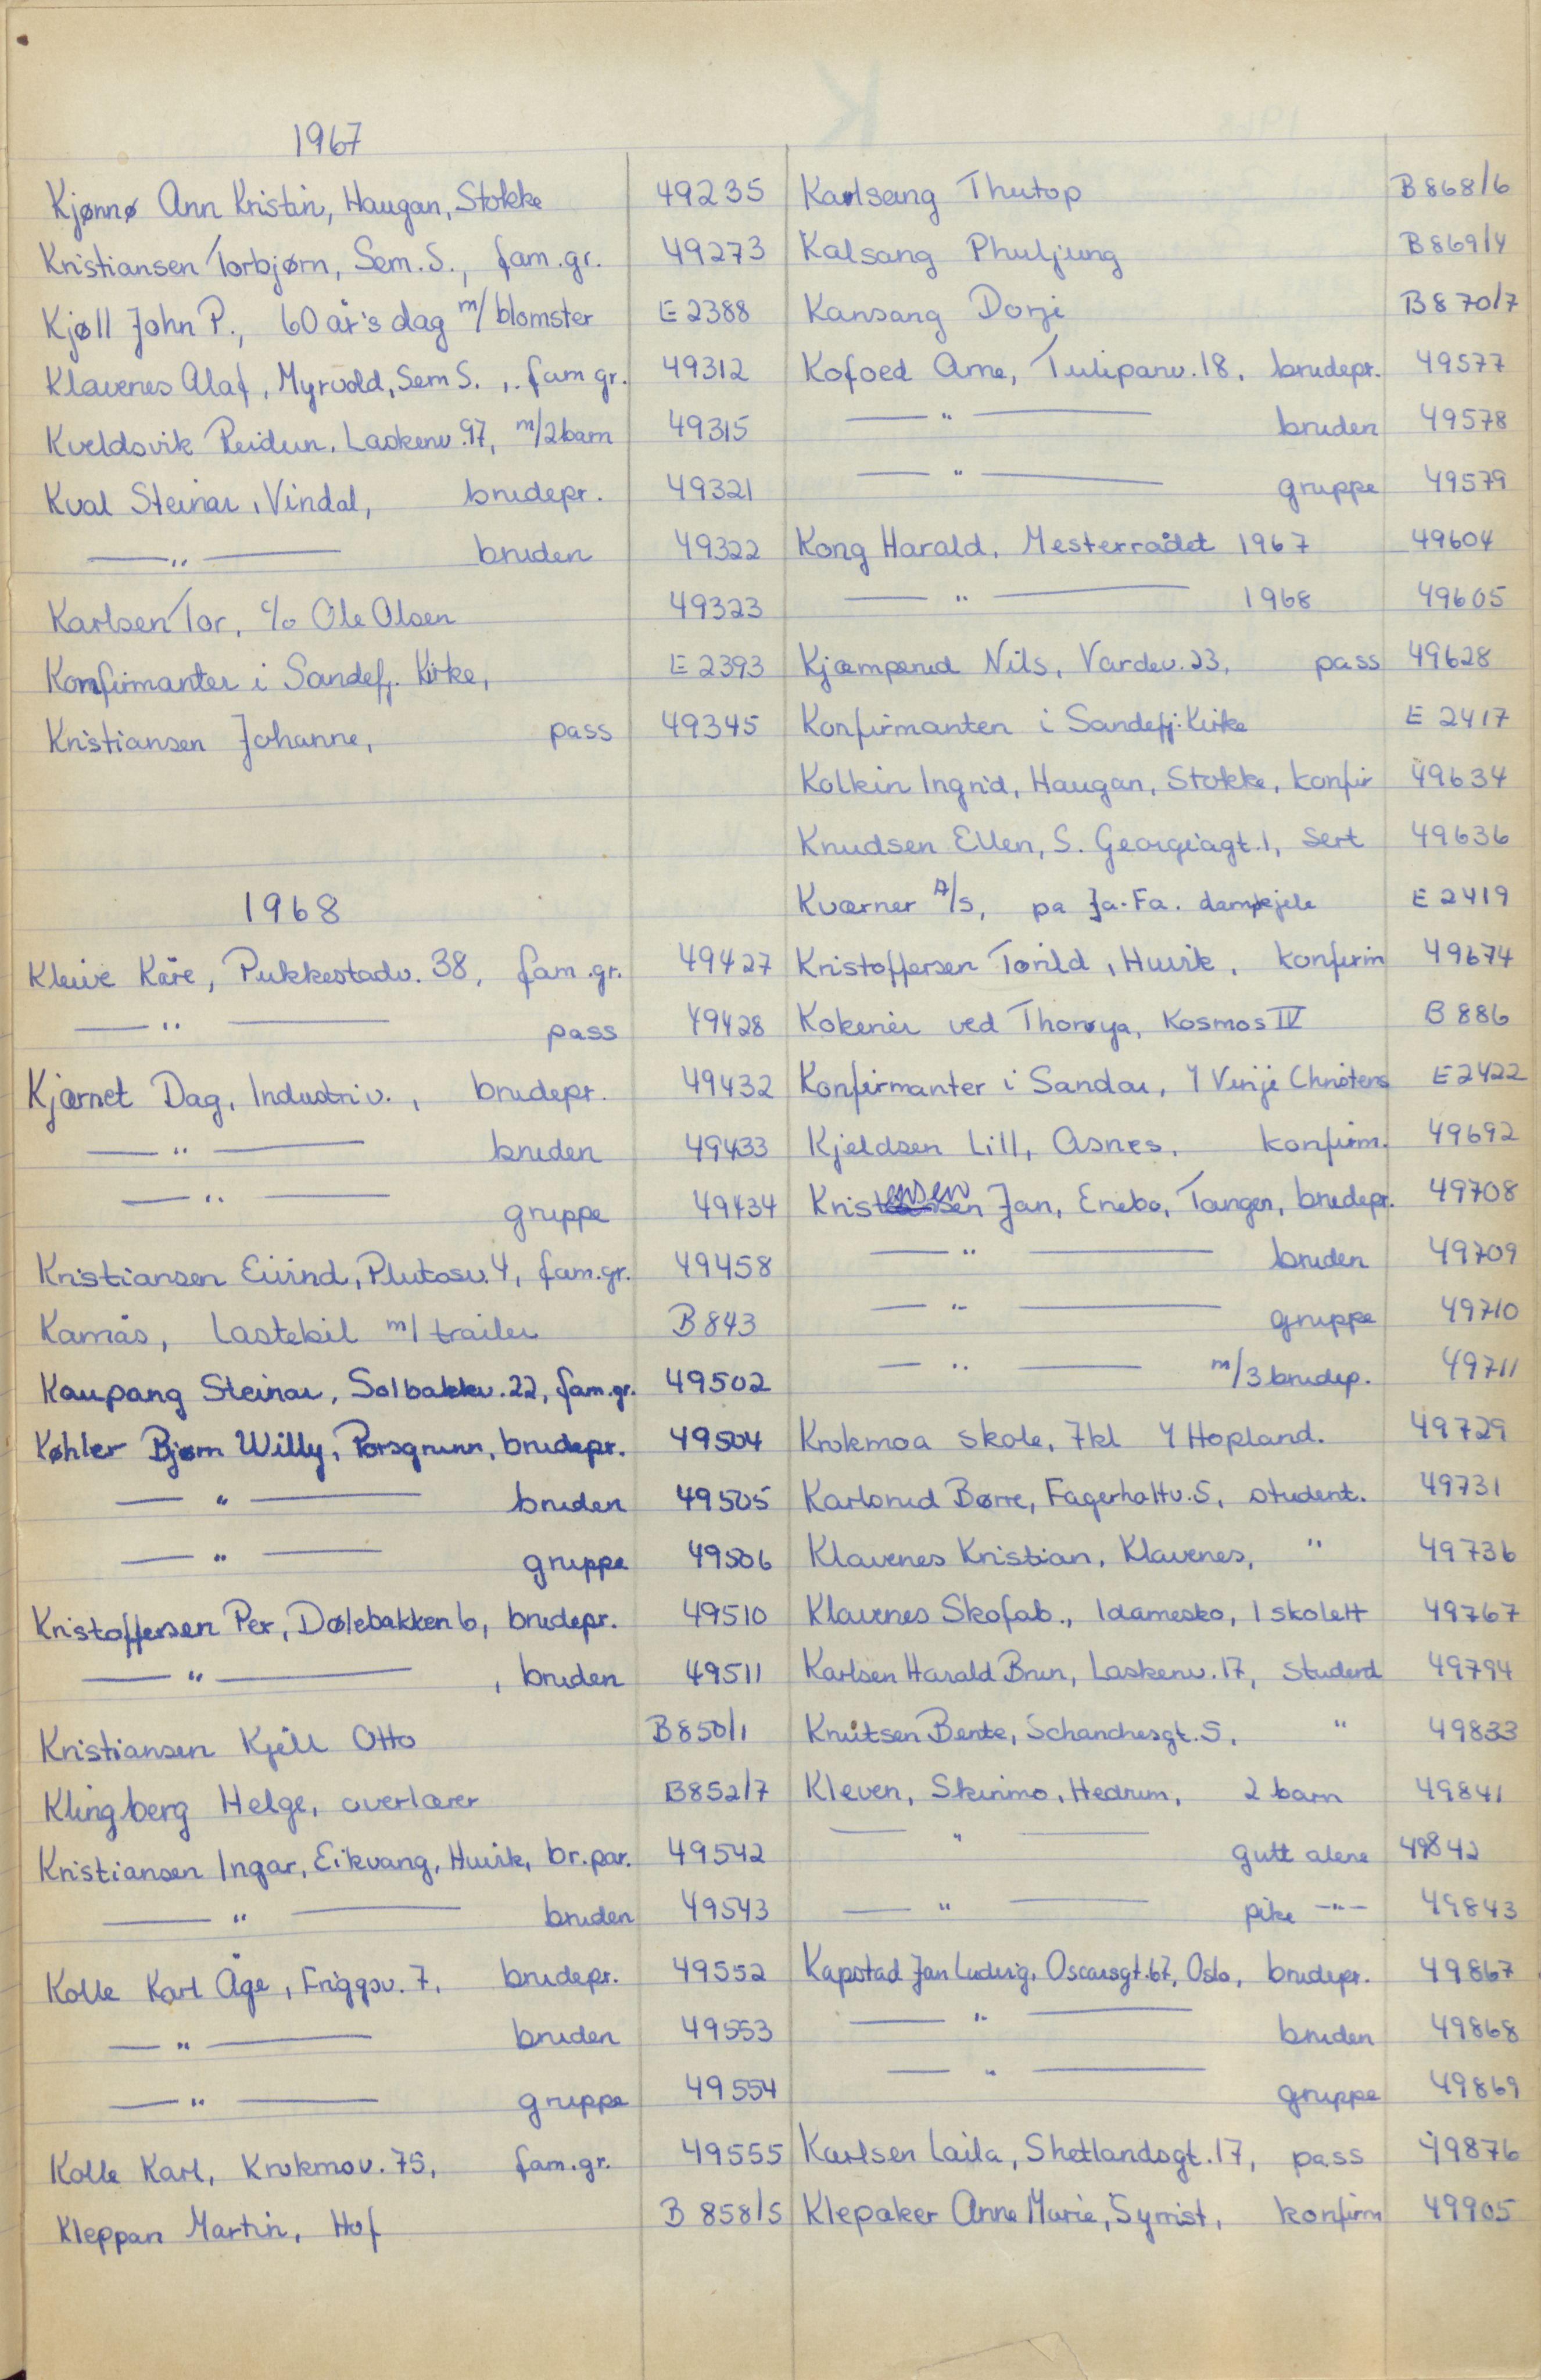 1967
Kjønnø Ann Kristin, Haugan, Stokke 49235
Kristiansen Torbjørn, Sem. S., fam.gr. 49273
Kjøll John P., 60 år's dag m/ blomster E 2388
Klavenes Olaf, Myrvold, Sem S., fam gr. 49312
Kveldsvik Reidun, Laskenv. 97, m/2 barn 49315
Kval Steinar, Vindal, brudepr. 49321
— " — bruden 49322
Karlsen Tor, c/o Ole Olsen 49323
Konfirmanter i Sandefj. Kirke, E 2393
Kristiansen Johanne, pass 49345
1968
Kleive Kåre, Pukkestadv. 38, fam.gr. 49427
— " — pass 49428
Kjærnet Dag, Industriv., brudepr. 49432
— " — bruden 49433
— " — gruppe 49434
Kristiansen Eivind, Plutosv. 4, fam.gr. 49458
Kamås, Lastebil m/ trailer B 843
Kaupang Steinar, Solbakkv. 22, fam.gr. 49502
Køhler Bjørn Willy, Porsgrunn, brudepr. 49504
— " — bruden 49505
— " — gruppe 49506
Kristoffersen Per, Dølebakken 6, brudepr. 49510
— " — , bruden 49511
Kristiansen Kjell Otto B 850/1
Klingberg Helge, overlærer B852/7
Kristiansen Ingar, Eikvang, Huvik, br.par. 49542
— " — bruden 49543
Kolle Karl Åge, Friggsv. 7, brudepr. 49552
— " — bruden 49553
— " — gruppe 49554
Kolle Karl, Krokmov. 75, fam.gr. 49555
Kleppan Martin, Hof B 858/5
Karlsang Thutop B 868/6
Kalsang Phuljung B 869/4
Kansang Dorji B 870/7
Kofoed Arne, Tulipanv. 18, brudepr. 49577
— " — bruden 49578
— " — gruppe 49579
Kong Harald, Mesterrådet 1967 49604
— " — 1968 49605
Kjæmperud Nils, Vardev. 23, pass 49628
Konfirmanten i Sandefj. Kirke E 2417
Kolkin Ingrid, Haugan, Stokke, konfir 49634
Knudsen Ellen, S. Georgiagt. 1, Sert 49636
Kværner A/S, pa Ja-Fa. dampkjele E 2419
Kristoffersen Torild, Huvik, konfirm 49674
Kokerier ved Thorøya, Kosmos IV B 886
Konfirmanter i Sandar, E2422
Kjeldsen Lill, Åsnes, konfirm. 49692
Kristensen Jan, Enebo, Tangen, brudepr. 49708
— " — bruden 49709
— " — gruppe 49710
— " — m/3 brudep. 49711
Krokmoa skole, 7kl Hopland. 49729
Karlsrud Børre, Fagerholtv. 5, student. 49731
Klavenes Kristian, Klavenes, " 49736
Klavenes Skofab., 1 damesko, 1 skolett 49767
Karlsen Harald Brun, Laskenv. 17, student 49794
Knutsen Bente, Schanchesgt. 5, " 49833
Kleven, Skirimo, Hedrum, 2 barn 49841
— " — gutt alene 49842
— " — pike -"- 49843
Kapstad Jan Ludvig, Oscarsgt. 67, Oslo, brudepr. 49867
— " — bruden 49868
— " — gruppe 49869
Karlsen Laila, Shetlandsgt. 17, pass 49876
Klepaker Anne Marie, Syrrist, konfirm 49905